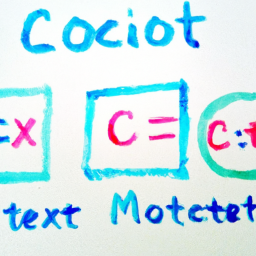 Cociot
=x C= C:t
text Motctet